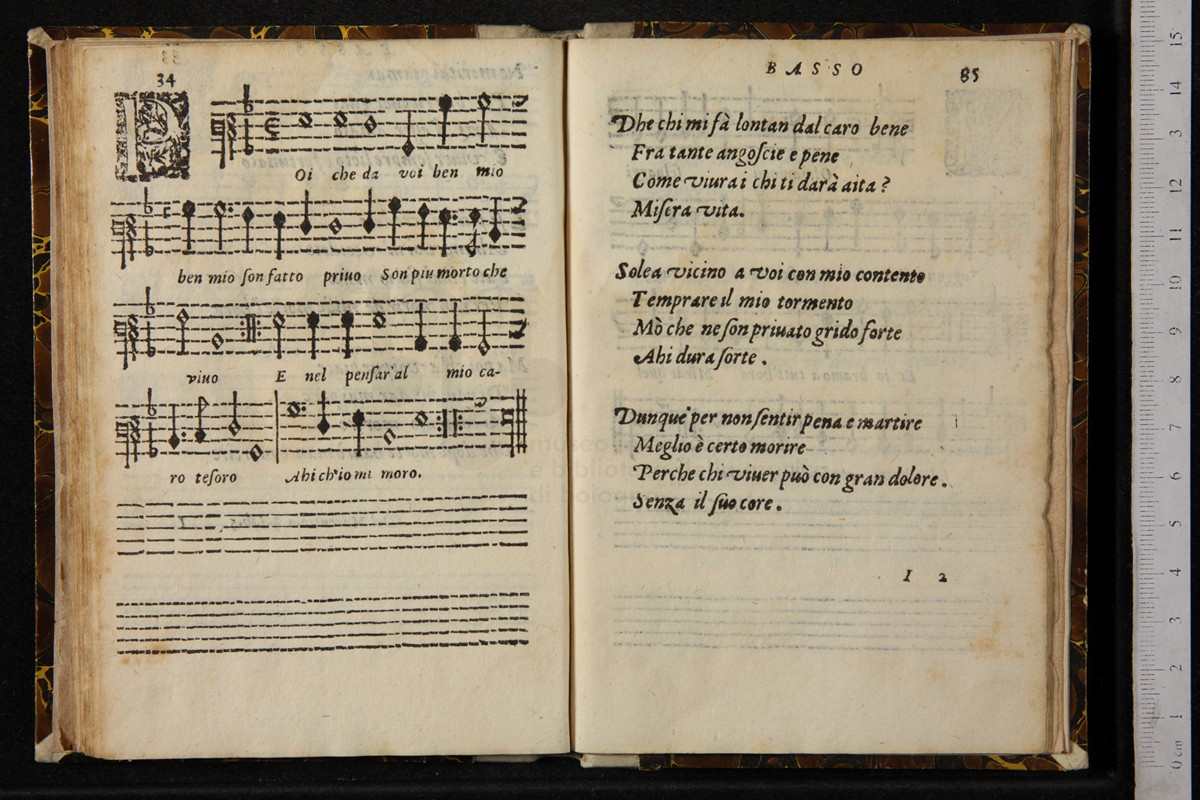 34
POi che da voi ben mio
ben mio ſon fatto priuo Son piu morto che
viuo E nel penſar'al mio ca-
ro teſoro Ahi ch'io mi moro.
BASSO
85
Dhe chi mi fà lontan dal caro bene
Fra tante angoſcie e pene
Come viurai chi ti darà aita?
Miſera vita.
Solea vicino a voi con mio contento
Temprare il mio tormento
Mò che ne ſon priuato grido forte
Ahi dura ſorte.
Dunque per non ſentir pena e martire
Meglio è certo morire
Perche chi viuer può con gran dolore.
Senza il ſuo core.
I 2
museo
e bibliote
di bolo
0 cm 1 2 3 4 5 6 7 8 9 10 11 12 13 14 15